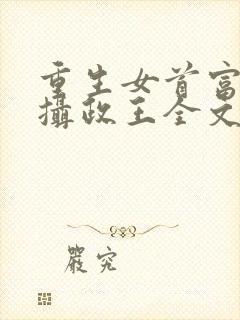 重生女首富
攝政王全文
嚴究